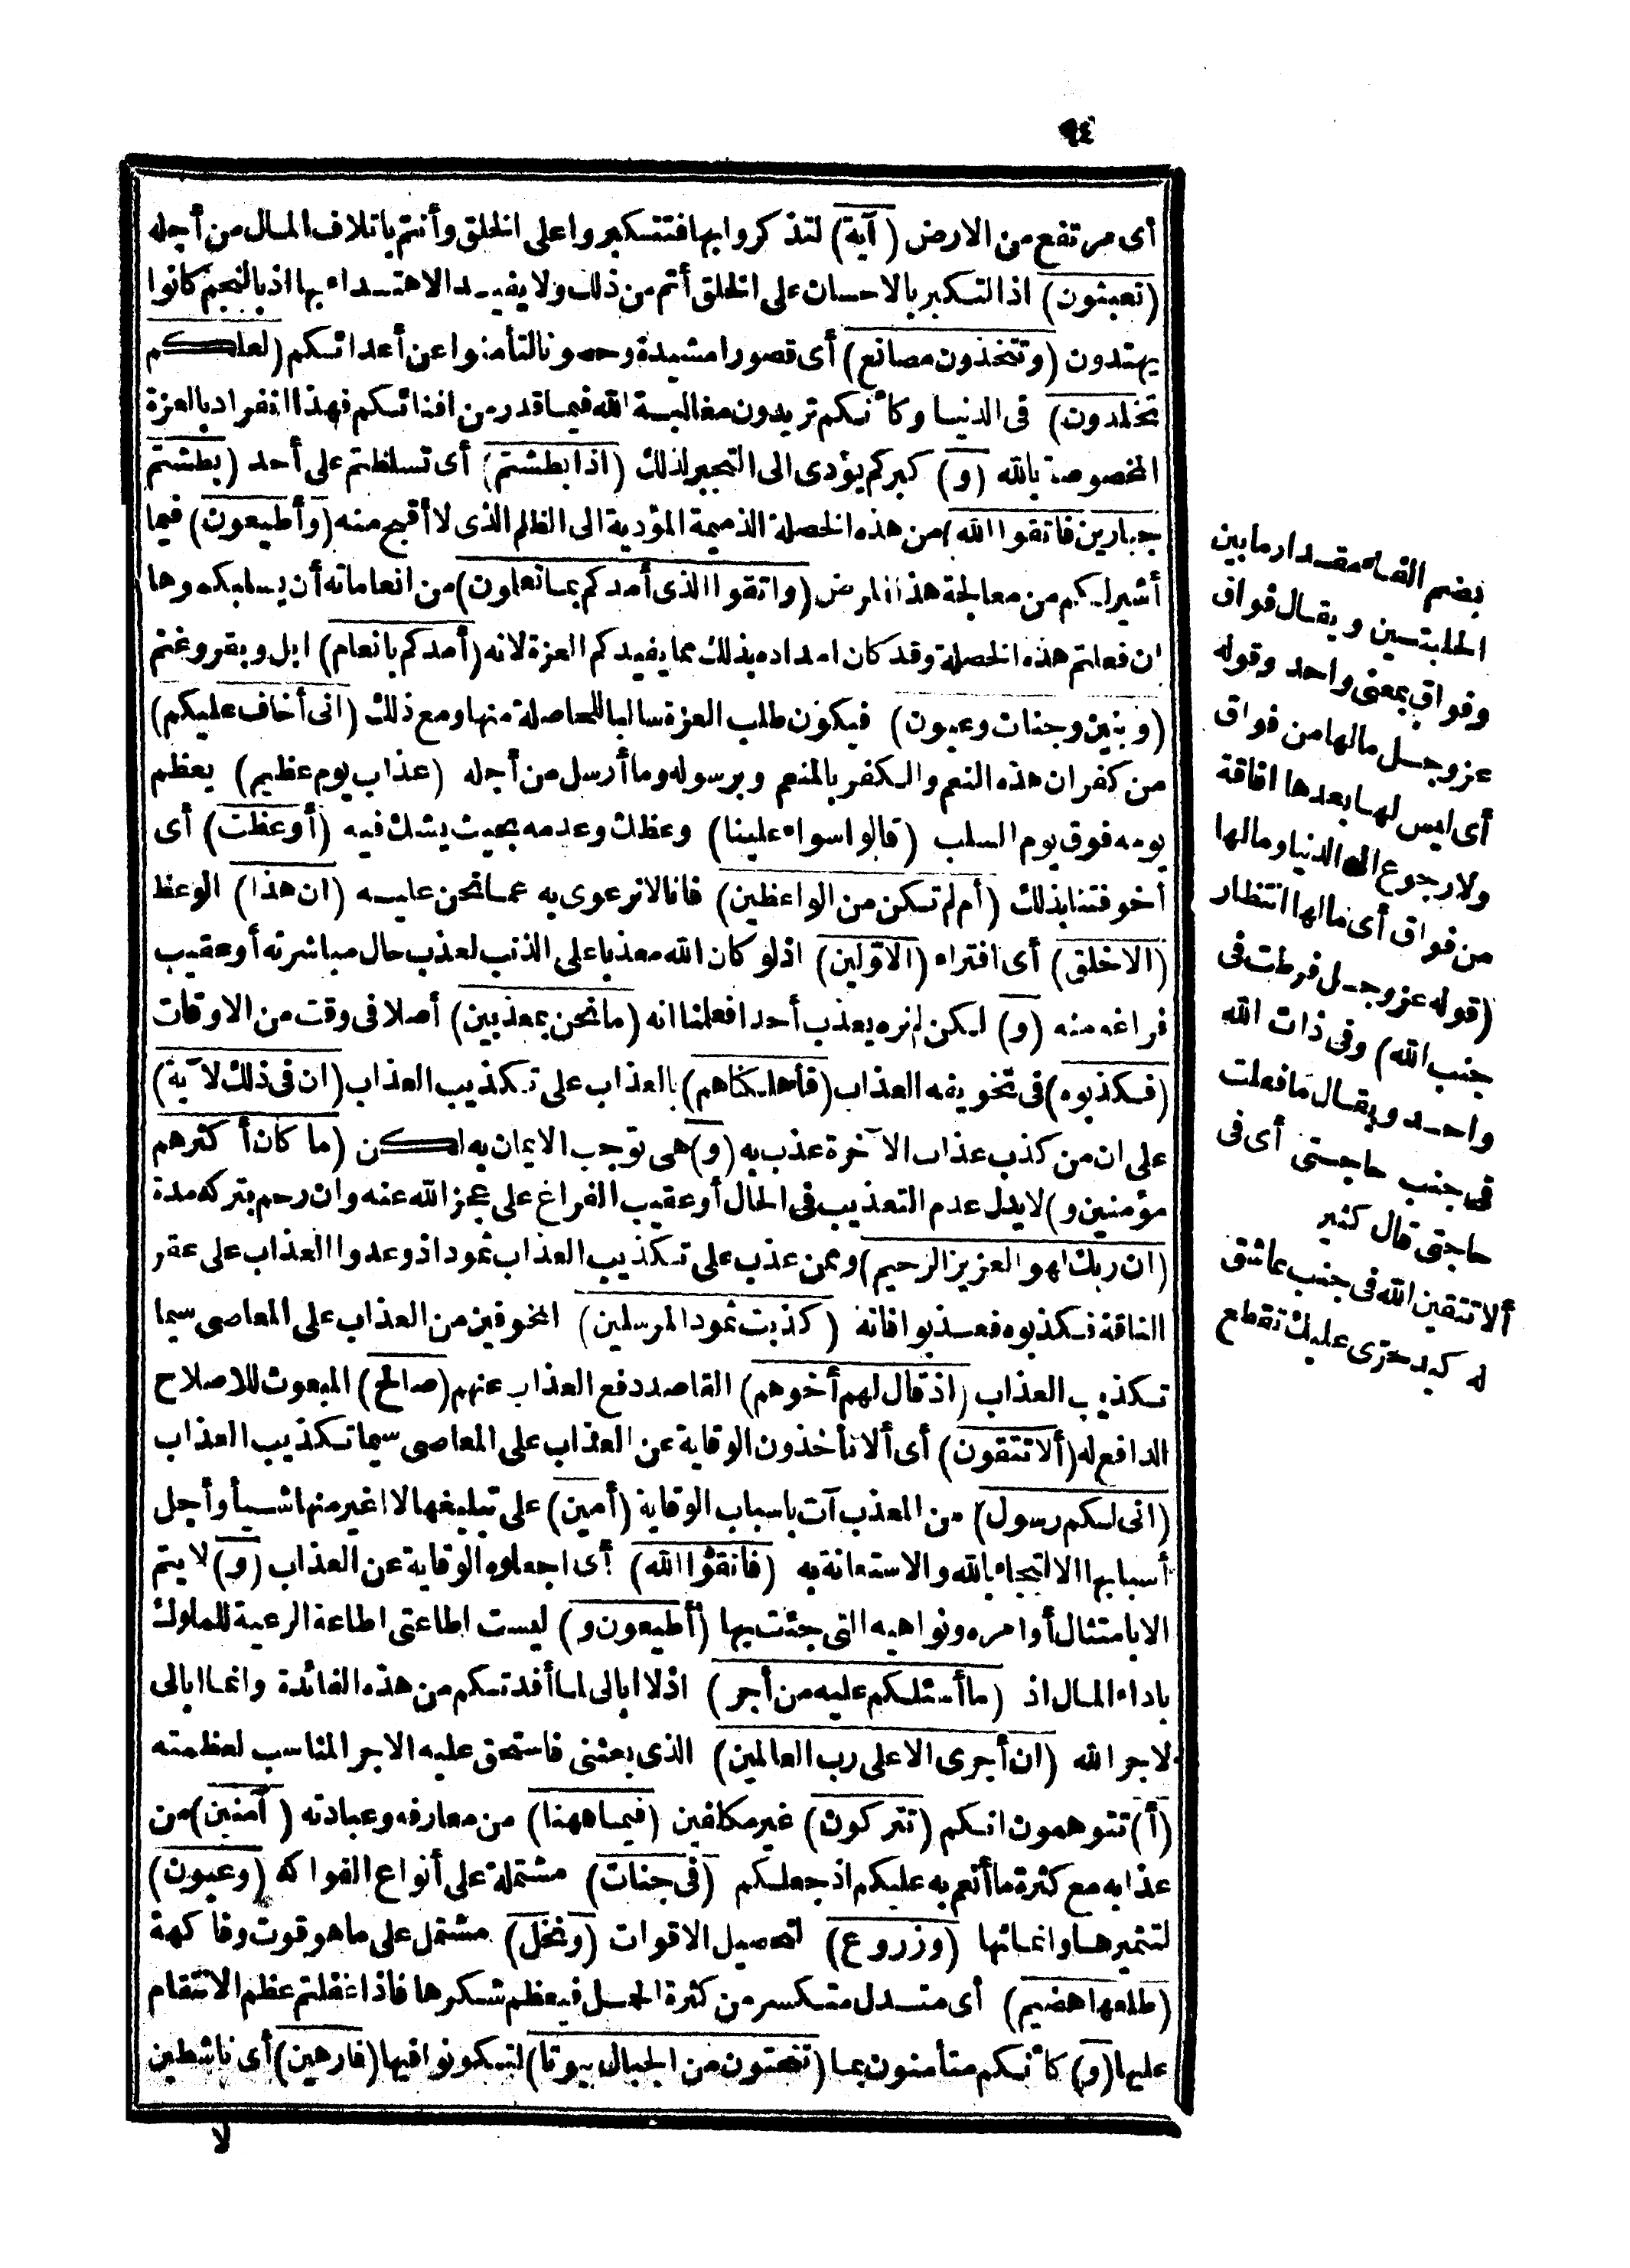 ٩٤
أى مرتفع من الارض (آية) لتذكروا بها فتتكبروا على الخلق وأنتم باتلاف المال من أجله
(تعبثون) اذ التكبر بالاحسان على الخلق أتم من ذلك ولا يفيد الاهتداء بها اذ بالنجم كانوا
يهتدون (وتتخذون مصانع) أى قصورا مشيدة وحصونا لتأمنوا عن أعدائكم (لعلكم
تخلدون) فى الدنيا وكأنكم تريدون مغالبة الله فيما قدر من افنائكم فهذا انفراد بالعزة
المخصوصة بالله (و) كبركم يؤدى الى التجبر لذلك (اذا بطشتم) أى تسلطتم على أحد (بطشتم
جبارين فاتقوا الله) من هذه الخصلة الذميمة المؤدية الى الظلم الذى لا أقبح منه (وأطيعون) فيما
أشير لكم من معالجة هذا المرض (واتقوا الذى أمدكم بما تعلمون) من انعاماته أن يسلبكموها
ان فعلتم هذه الخصلة وقد كان امداده بذلك مما يفيدكم العزة لانه (أمدكم بانعام) ابل وبقر وغنم
(وبنين وجنات وعيون) فيكون طلب العزة سالبا للحاصلة منها ومع ذلك (انى أخاف عليكم)
من كفران هذه النعم والكفر بالمنعم وبرسوله وما أرسل من أجله (عذاب يوم عظيم) يعظم
يومه فوق يوم السلب (قالوا سواء علينا) وعظك وعدمه بحيث يشك فيه (أوعظت) أى
أخوفتنا بذلك (أم لم تكن من الواعظين) فانا لا نرعوى به عما نحن عليه (ان هذا) الوعظ
(الاخلق) أى افتراء (الاوّلين) اذ لو كان الله معذبا على الذنب لعذب حال مباشرته أو عقيب
فراغه منه (و) لكن لم نره يعذب أحدا فعلمنا انه (ما نحن بمعذبين) أصلا فى وقت من الاوقات
(فكذبوه) فى تخويفه العذاب (فأهلكناهم) بالعذاب على تكذيب العذاب (ان فى ذلك لآية)
على ان من كذب عذاب الآخرة عذب به (و) هى توجب الايمان به لكن (ما كان أكثرهم
مؤمنين و) لا يدل عدم التعذيب فى الحال أو عقيب الفراغ على عجز الله عنه وان رحم بتركه مدة
(ان ربك لهو العزيز الرحيم) وممن عذب على تكذيب العذاب ثمود اذ وعدوا العذاب على عقر
الناقة فكذبوه فعذبوا فانه (كذبت ثمود المرسلين) المخوفين من العذاب على المعاصى سيما
تكذيب العذاب (اذ قال لهم أخوهم) القاصد دفع العذاب عنهم (صالح) المبعوث للاصلاح
الدافع له (ألا تتقون) أى ألا تأخذون الوقاية عن العذاب على المعاصى سيما تكذيب العذاب
(انى لكم رسول) من المعذب آت باسباب الوقاية (أمين) على تبليغها لا اغير منها شيأ وأجل
أسبابها الالتجاء بالله والاستعانة به (فاتقوا الله) أى اجعلوه الوقاية عن العذاب (و) لا يتم
الا بامتثال أوامره ونواهيه التى جئت بها (أطيعون و) ليست اطاعتى اطاعة الرعية للملوك
باداء المال اذ (ما أسئلكم عليه من أجر) اذ لا ابالى لما أفدتكم من هذه الفائدة وانما ابالى
لاجر الله (ان أجرى الا على رب العالمين) الذى بعثنى فاستحق عليه الاجر المناسب لعظمته
(أ) تتوهمون انكم (تتركون) غير مكلفين (فيما ههنا) من معارفه وعبادته (آمنين) من
عذابه مع كثرة ما أنعم به عليكم اذ جعلكم (فى جنات) مشتملة على أنواع الفواكه (وعيون)
لتثميرها وانمائها (وزروع) لتحصيل الاقوات (ونخل) مشتمل على ما هو قوت وفاكهة
(طلعها هضيم) أى متدل متكسر من كثرة الحمل فيعظم شكرها فاذا غفلتم عظم الانتقام
عليها (و) كأنكم متأمنون بما (تنحتون من الجبال بيوتا) لتكونوا فيها (فارهين) أى ناشطين
لا
بضم الفاء مقدار ما بين
الحلبتين ويقال فواق
وفواق بمعنى واحد وقوله
عز وجل ما لها من فواق
أى ليس لها بعدها افاقة
ولا رجوع الى الدنيا وما لها
من فواق أى ما لها انتظار
(قوله عز وجل فرطت فى
جنب الله) وفى ذات الله
واحد ويقال ما فعلت
فى جنب حاجتى أى فى
حاجتى قال كثير
ألا تتقين الله فى جنب عاشق
له كبد حرّى عليك تقطع